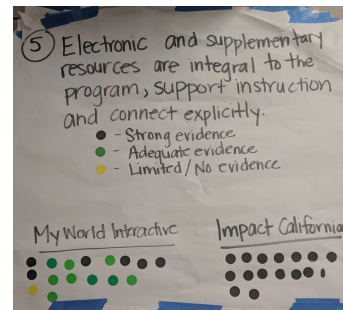 5 Electronic and supplementary
resources are integral to the
program, support instruction
and connect explicitly.
- Strong evidence
- Adequate evidence
- Limited/No evidence
My World Interactive
Impact California